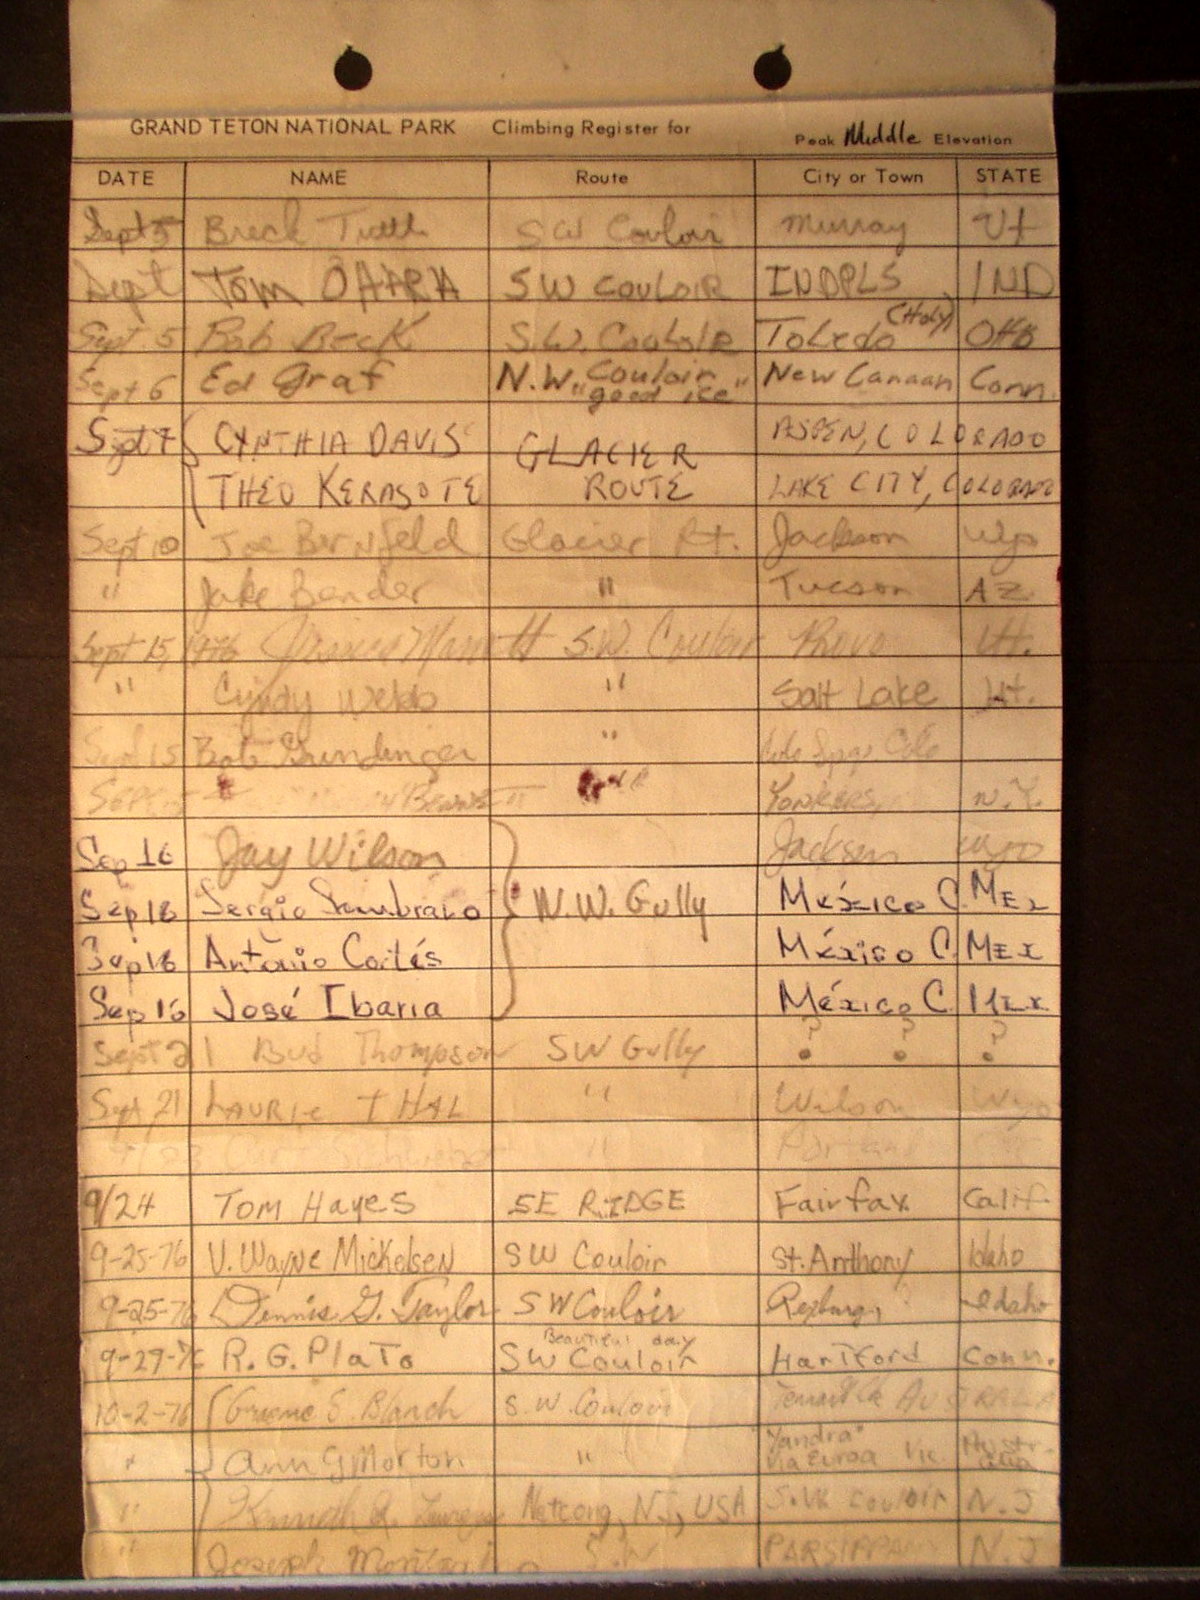 GRAND TETON NATIONAL PARK Climbing Register for Peak Middle Elevation
DATE NAME Route City or Town STATE
Sept 5 Breck SW Couloir Murray Ut
Sept Tom OHARA SW COULOIR INDPLS IND
Sept. 5 Bob Beck S.W. Couloir Toledo (Holy) OH
Sept 6 Ed Graf N.W. Couloir "good ice" New Canaan Conn.
Sept 7 CYNTHIA DAVIS GLACIER ASPEN, COLORADO
THEO KERASOTE ROUTE LAKE CITY, COLORADO
Sept 10 Joe Bernfeld Glacier Rt. Jackson Wyo
" Jake Bender " Tucson AZ
Sept 15, 1976 S.W. Couloir Provo Ut.
" Cyndy Webb " Salt Lake Ut.
Sept 15 Bob Gundinger " Colo
Sept Yonkers, N.Y.
Sep 16 Jay Wilson Jackson Wyo
Sep 16 Sergio N.W. Gully México C. MEX
Sep 16 Antonio Cortés México C. MEX
Sep 16 José Ibarra México C. MEX
Sept 21 Bud Thompson SW Gully ? ? ?
Sept 21 LAURIE THAL " Wilson Wyo
9/23 " Portland
9/24 Tom Hayes SE RIDGE Fairfax Calif.
9-25-76 V. Wayne Mickelsen SW Couloir St. Anthony Idaho
9-25-76 Dennis G. Taylor SW Couloir Rexburg, Idaho
Beautiful day
9-29-76 R. G. Plato SW Couloir Hartford Conn.
10-2-76 Graeme S. Blanch S.W. Couloir AUSTRALIA
" Ann G Morton " "Yandra" Via Euroa Vic. Australia
" Kenneth Netcong, NJ, USA S.W. Couloir N.J
" Joseph S.W PARSIPPANY N.J